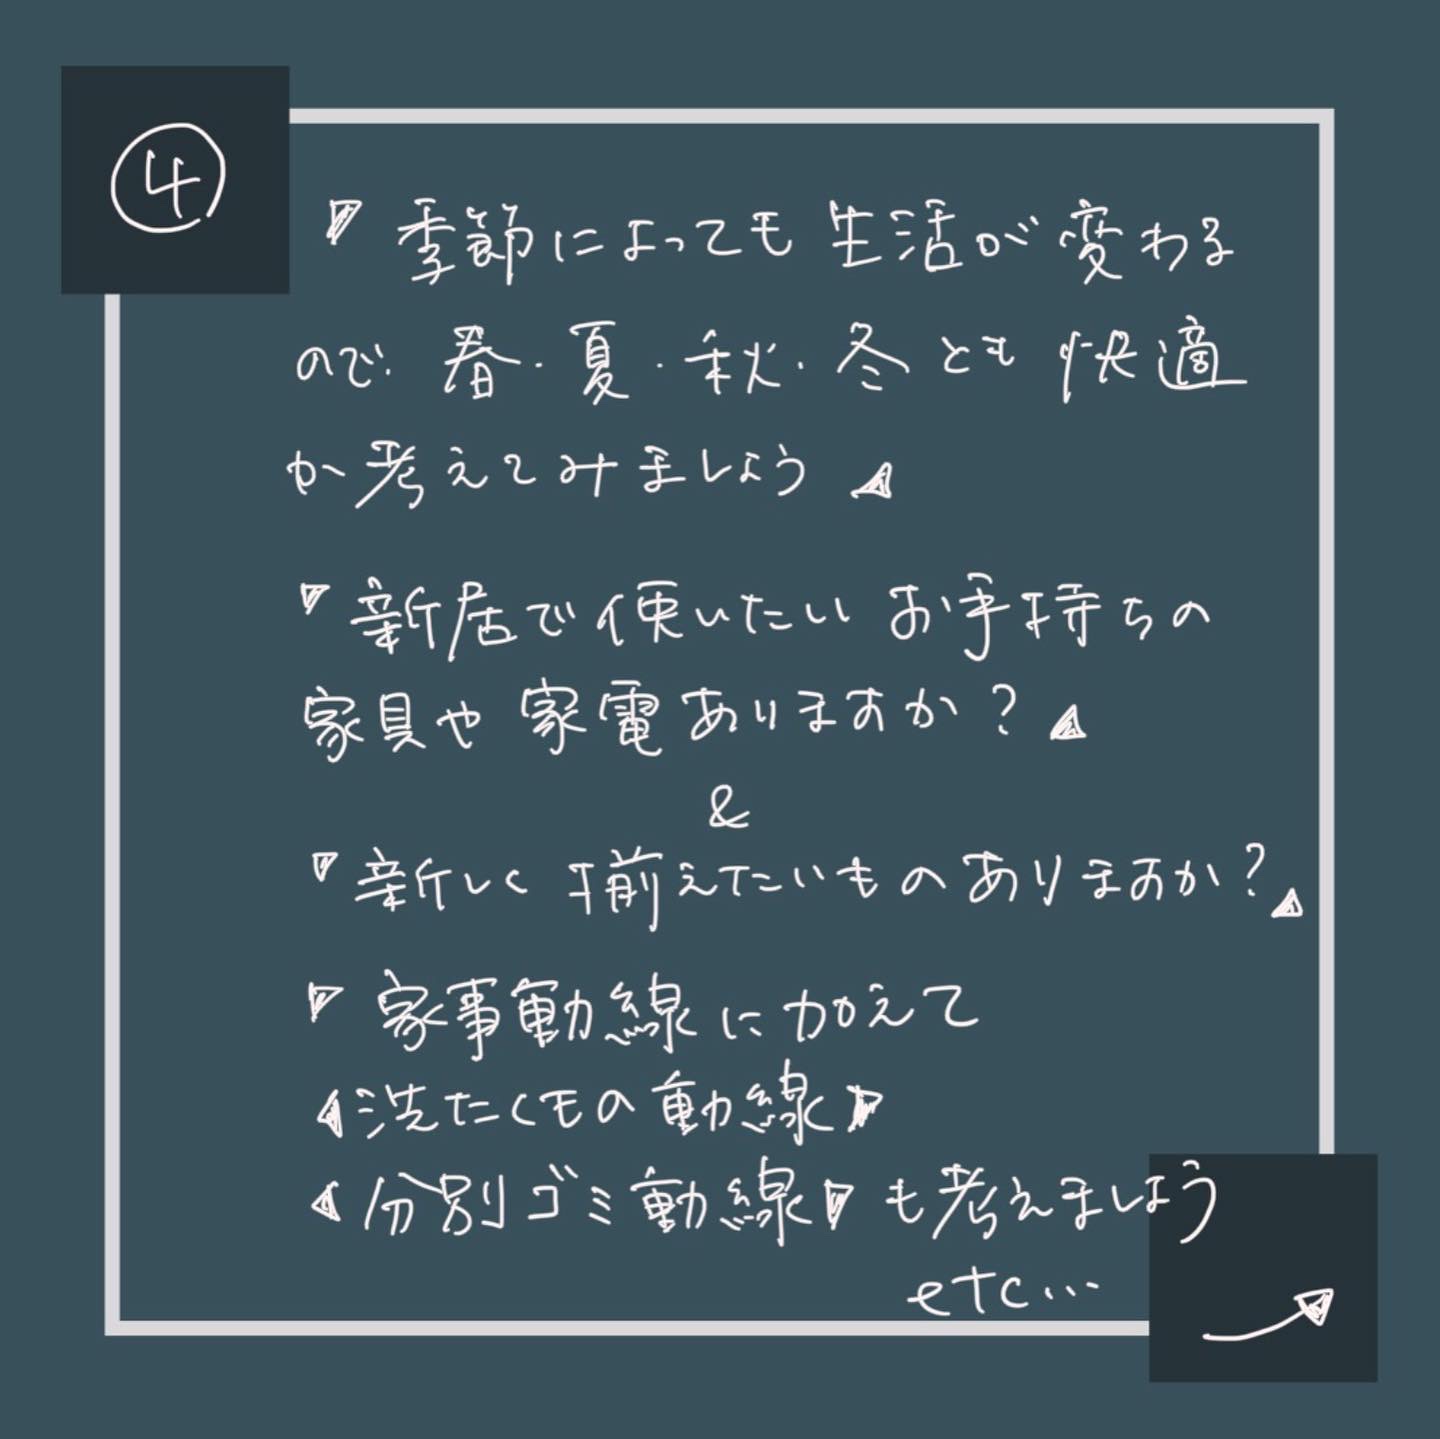 ④
季節によっても生活が変わる
ので 春・夏・秋・冬とも快適
か考えてみましょう
新居で使いたいお手持ちの
家具や家電ありますか?
&
新しく揃えたいものありますか?
家事動線に加えて
洗たくもの動線
分別ゴミ動線も考えましょう
etc…